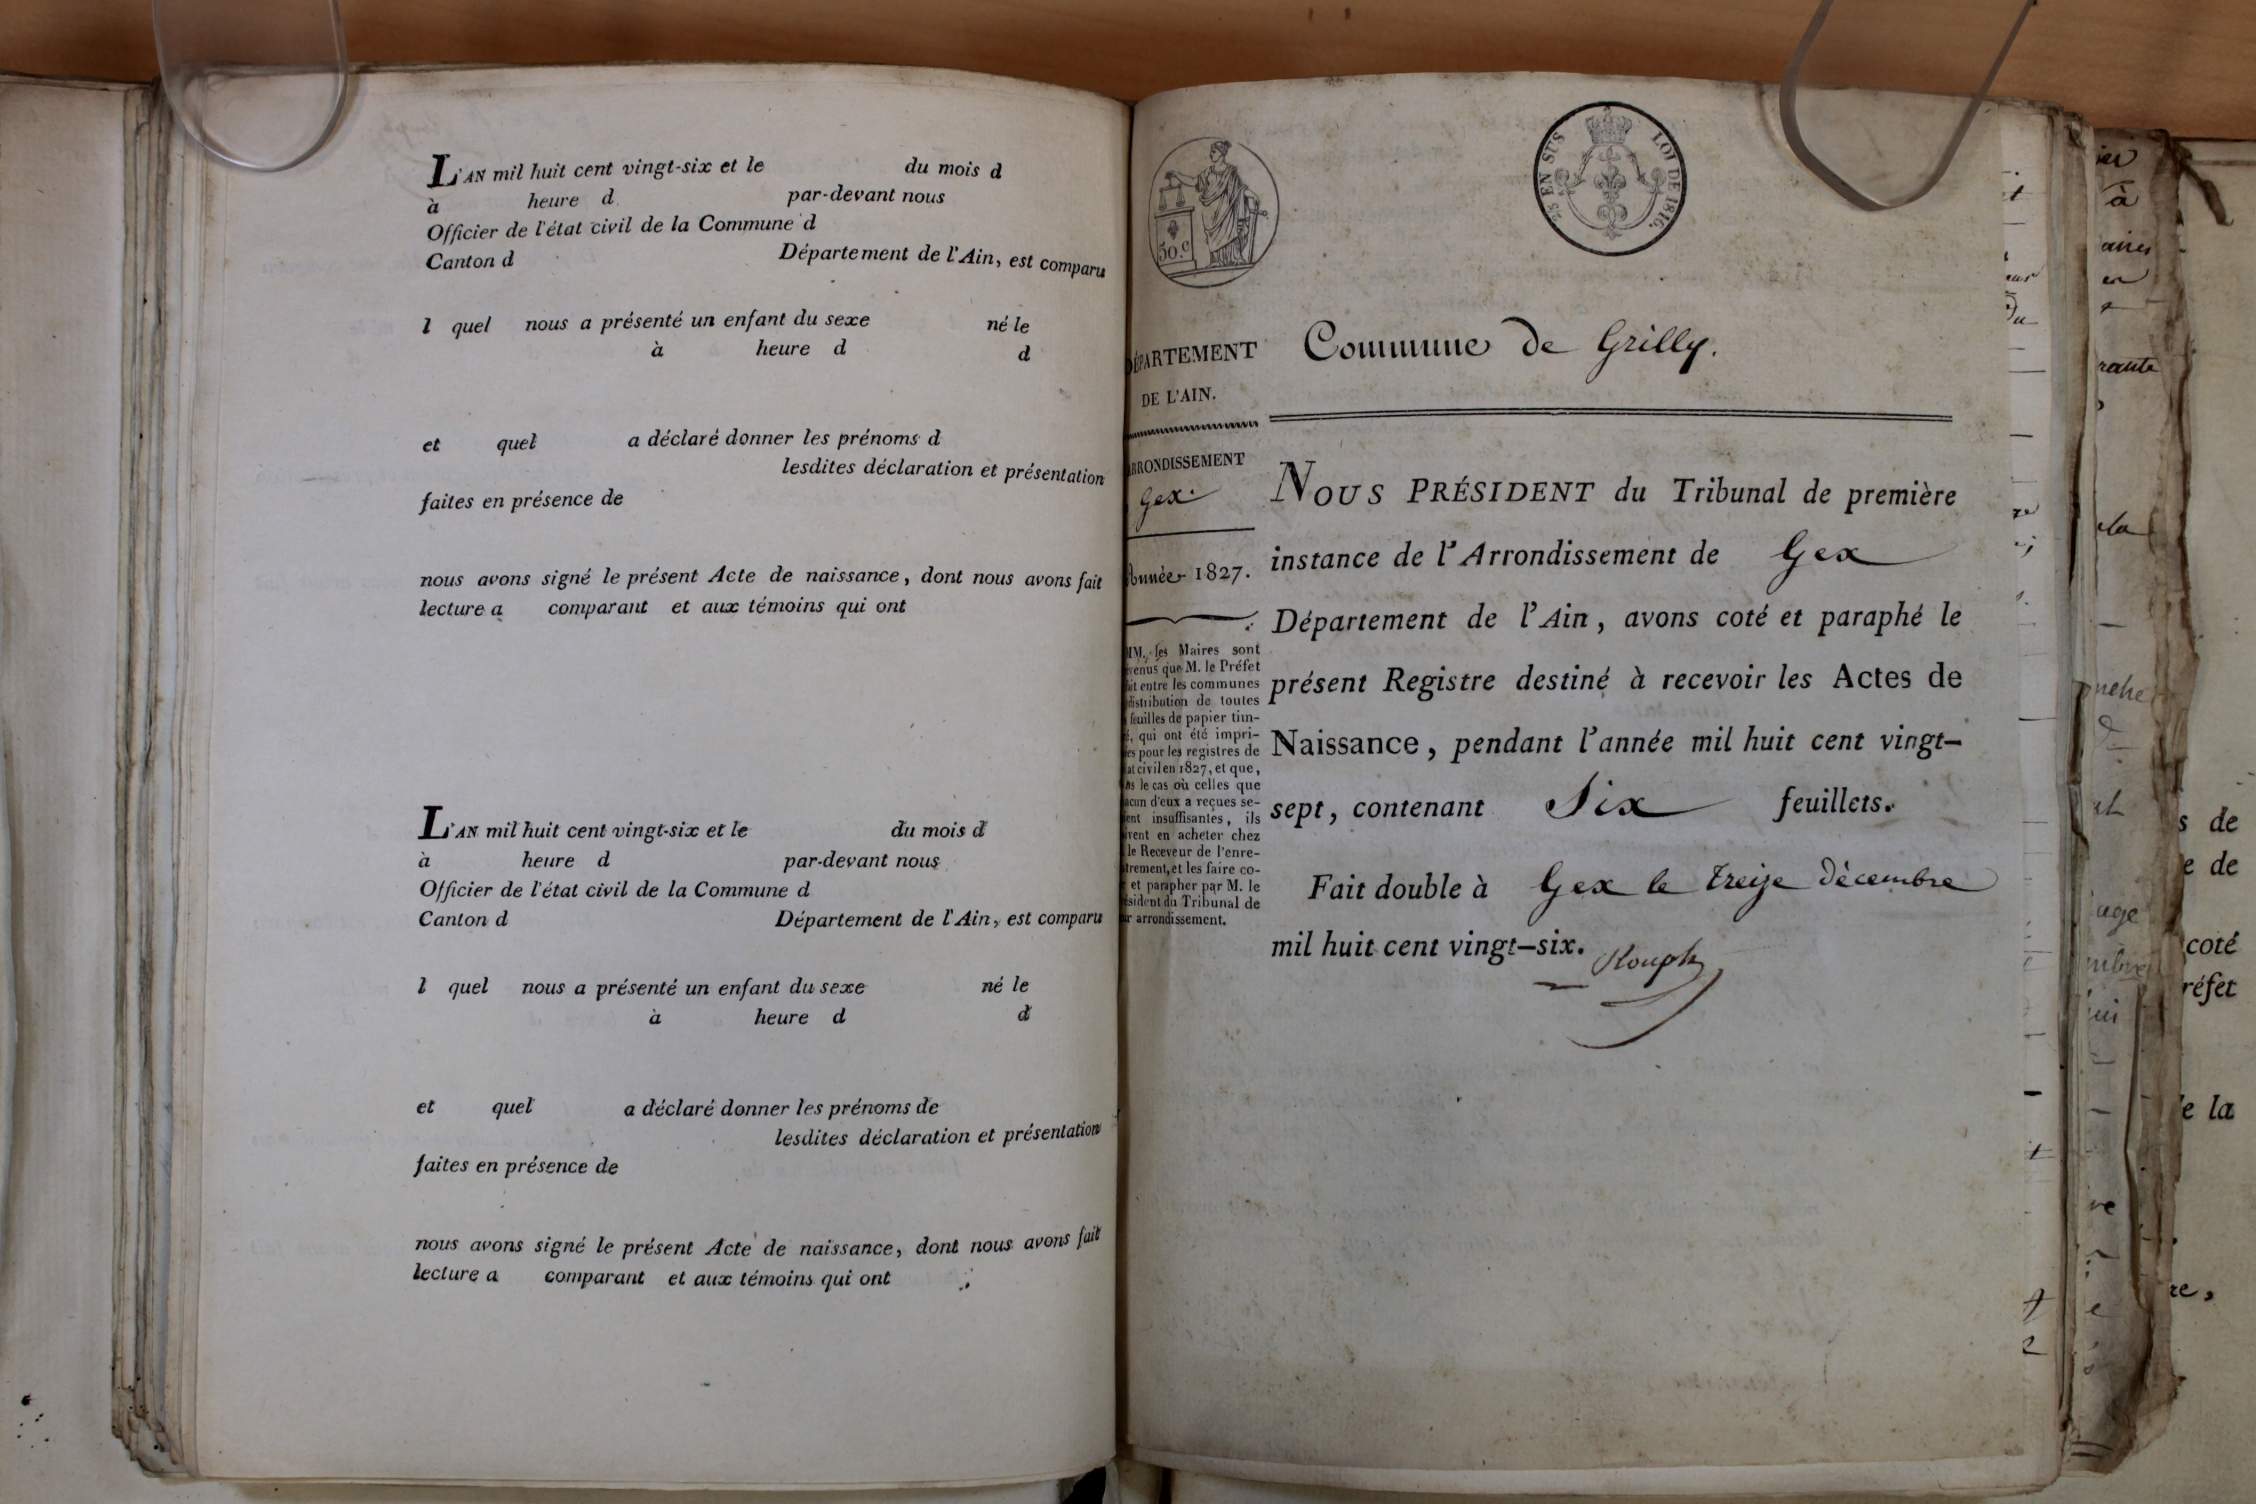 L'AN mil huit cent vingt-six et le du mois d
à heure d par-devant nous
Officier de l'état civil de la Commune d
Canton d Département de l'Ain, est comparu
l quel nous a présenté un enfant du sexe né le
à heure d d
et quel a déclaré donner les prénoms d
lesdites déclaration et présentation
faites en présence de
nous avons signé le présent Acte de naissance, dont nous avons fait
lecture a comparant et aux témoins qui ont
L'AN mil huit cent vingt-six et le du mois d
à heure d par-devant nous
Officier de l'état civil de la Commune d
Canton d Département de l'Ain, est comparu
l quel nous a présenté un enfant du sexe né le
à heure d d
et quel a déclaré donner les prénoms de
lesdites déclaration et présentation
faites en présence de
nous avons signé le présent Acte de naissance, dont nous avons fait
lecture a comparant et aux témoins qui ont
50.c
25 EN SUS LOI DE 1816.
DÉPARTEMENT
DE L'AIN.
ARRONDISSEMENT
Gex.
Année 1827.
MM. les Maires sont
que M. le Préfet
entre les communes
distribution de toutes
feuilles de papier tim-
qui ont été impri-
pour les registres de
civil en 1827, et que,
le cas où celles que
d'eux a reçues se-
insuffisantes, ils
en acheter chez
le Receveur de l'enre-
et les faire co-
et parapher par M. le
du Tribunal de
arrondissement.
Commune de Grilly.
NOUS PRÉSIDENT du Tribunal de première
instance de l'Arrondissement de Gex
Département de l'Ain, avons coté et paraphé le
présent Registre destiné à recevoir les Actes de
Naissance, pendant l'année mil huit cent vingt-
sept, contenant Six feuillets.
Fait double à Gex le treize décembre
mil huit cent vingt-six.
Rouph
s de
e de
coté
réfet
e la